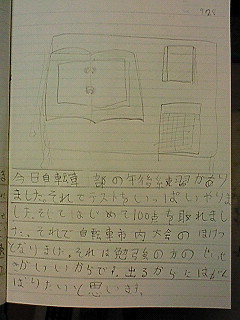 今日自転車部の午後練習があり
ました。それでテストをいっぱいやりま
した。そしてはじめて100点を取れまし
た。それで自転車市内大会の
となりました。それは勉強の方の
がいいからです。出るからにはがん
ばりたいと思います。